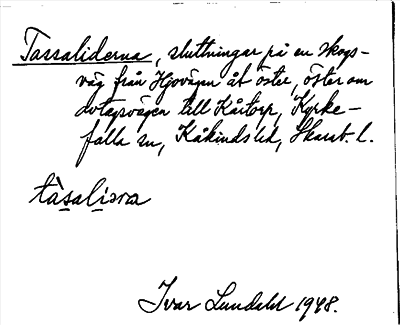 Tassaliderna, sluttningar på en skogs-
väg från Hjovägen åt öster, öster om
avtagsvägen till Kårtorp, Kyrke-
falla sn, Kåkinds hd, Skarab. l.
tàsaliəra
Ivar Lundahl 1948.